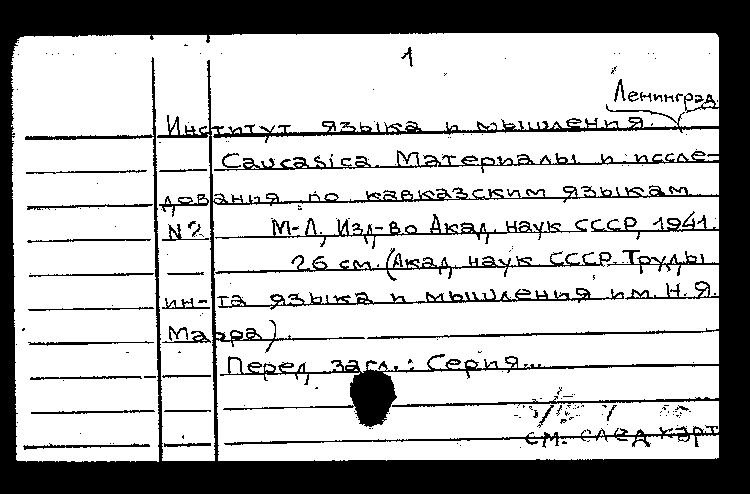 1
Ленинград.
Институт языка и мышления.
Caucasica. Материалы и иссле=
дования по кавказским языкам
N 2 М-Л, Изд-во Акад. наук СССР, 1941.
26 см. (Акад. наук СССР. Труды
ин-та языка и мышления им. Н.Я.
Марра).
Перед загл.: Серия...
см. след карт